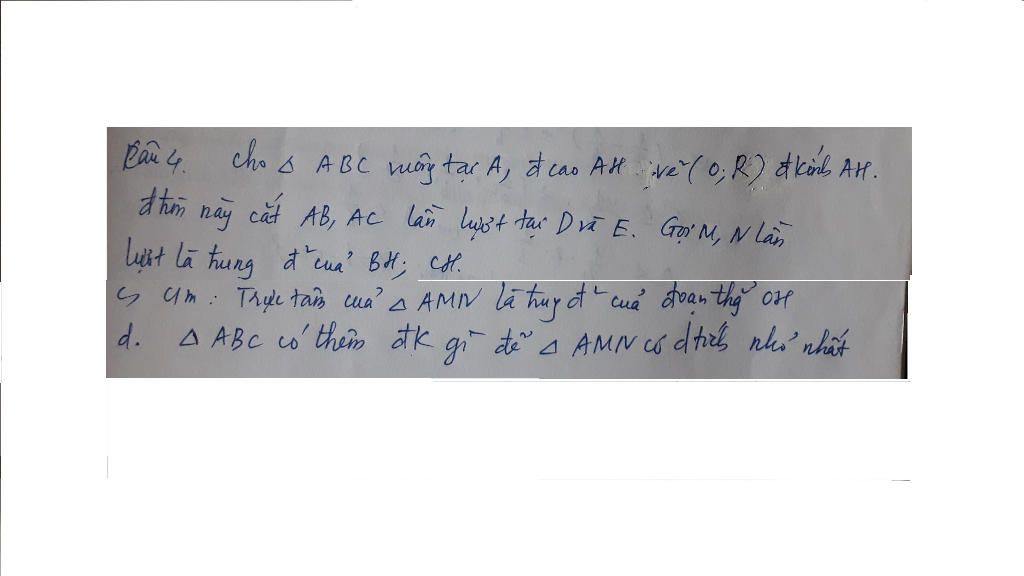 Câu 4. Cho △ ABC vuông tại A, đ cao AH. vẽ (O; R) đkính AH.
đtròn này cắt AB, AC lần lượt tại D và E. Gọi M, N lần
lượt là trung đ² của BH; CH.
c, Cm: Trực tâm của △ AMN là trug đ² của đoạn thg OH
d. △ ABC có thêm đk gì để △ AMN có dtích nhỏ nhất